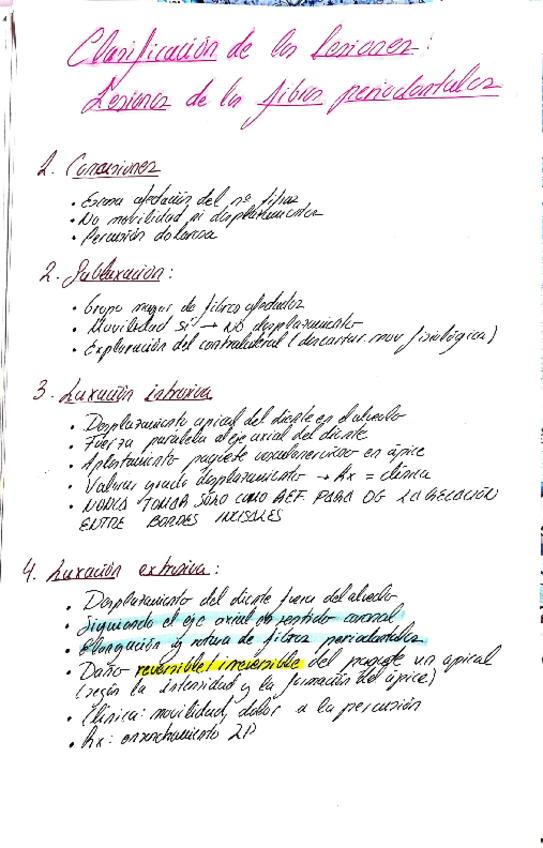 Clasificación de las lesiones:
Lesiones de las fibras periodontales
1. Concusiones
• Escasa afectación del nº fibras
• No movilidad ni desplazamientos
• Percusión dolorosa
2. Subluxación:
• Grupo mayor de fibras afectadas
• Movilidad sí → NO desplazamiento
• Exploración del contralateral (descartar mov fisiológica)
3. Luxación intrusiva
• Desplazamiento apical del diente en el alveolo
• Fuerza paralela al eje axial del diente
• Aplastamiento paquete vasculonervioso en ápice
• Valorar grado desplazamiento → Rx = clínica
• NUNCA TOMAR SÓLO COMO REF. PARA DG LA RELACIÓN
ENTRE BORDES INCISALES
4. Luxación extrusiva:
• Desplazamiento del diente fuera del alveolo
• Siguiendo el eje axial en sentido coronal
• Elongación y rotura de fibras periodontales
• Daño reversible/irreversible del paquete vn apical
(según la intensidad y la formación del ápice)
• Clínica: movilidad, dolor a la percusión
• Rx: ensanchamiento LP